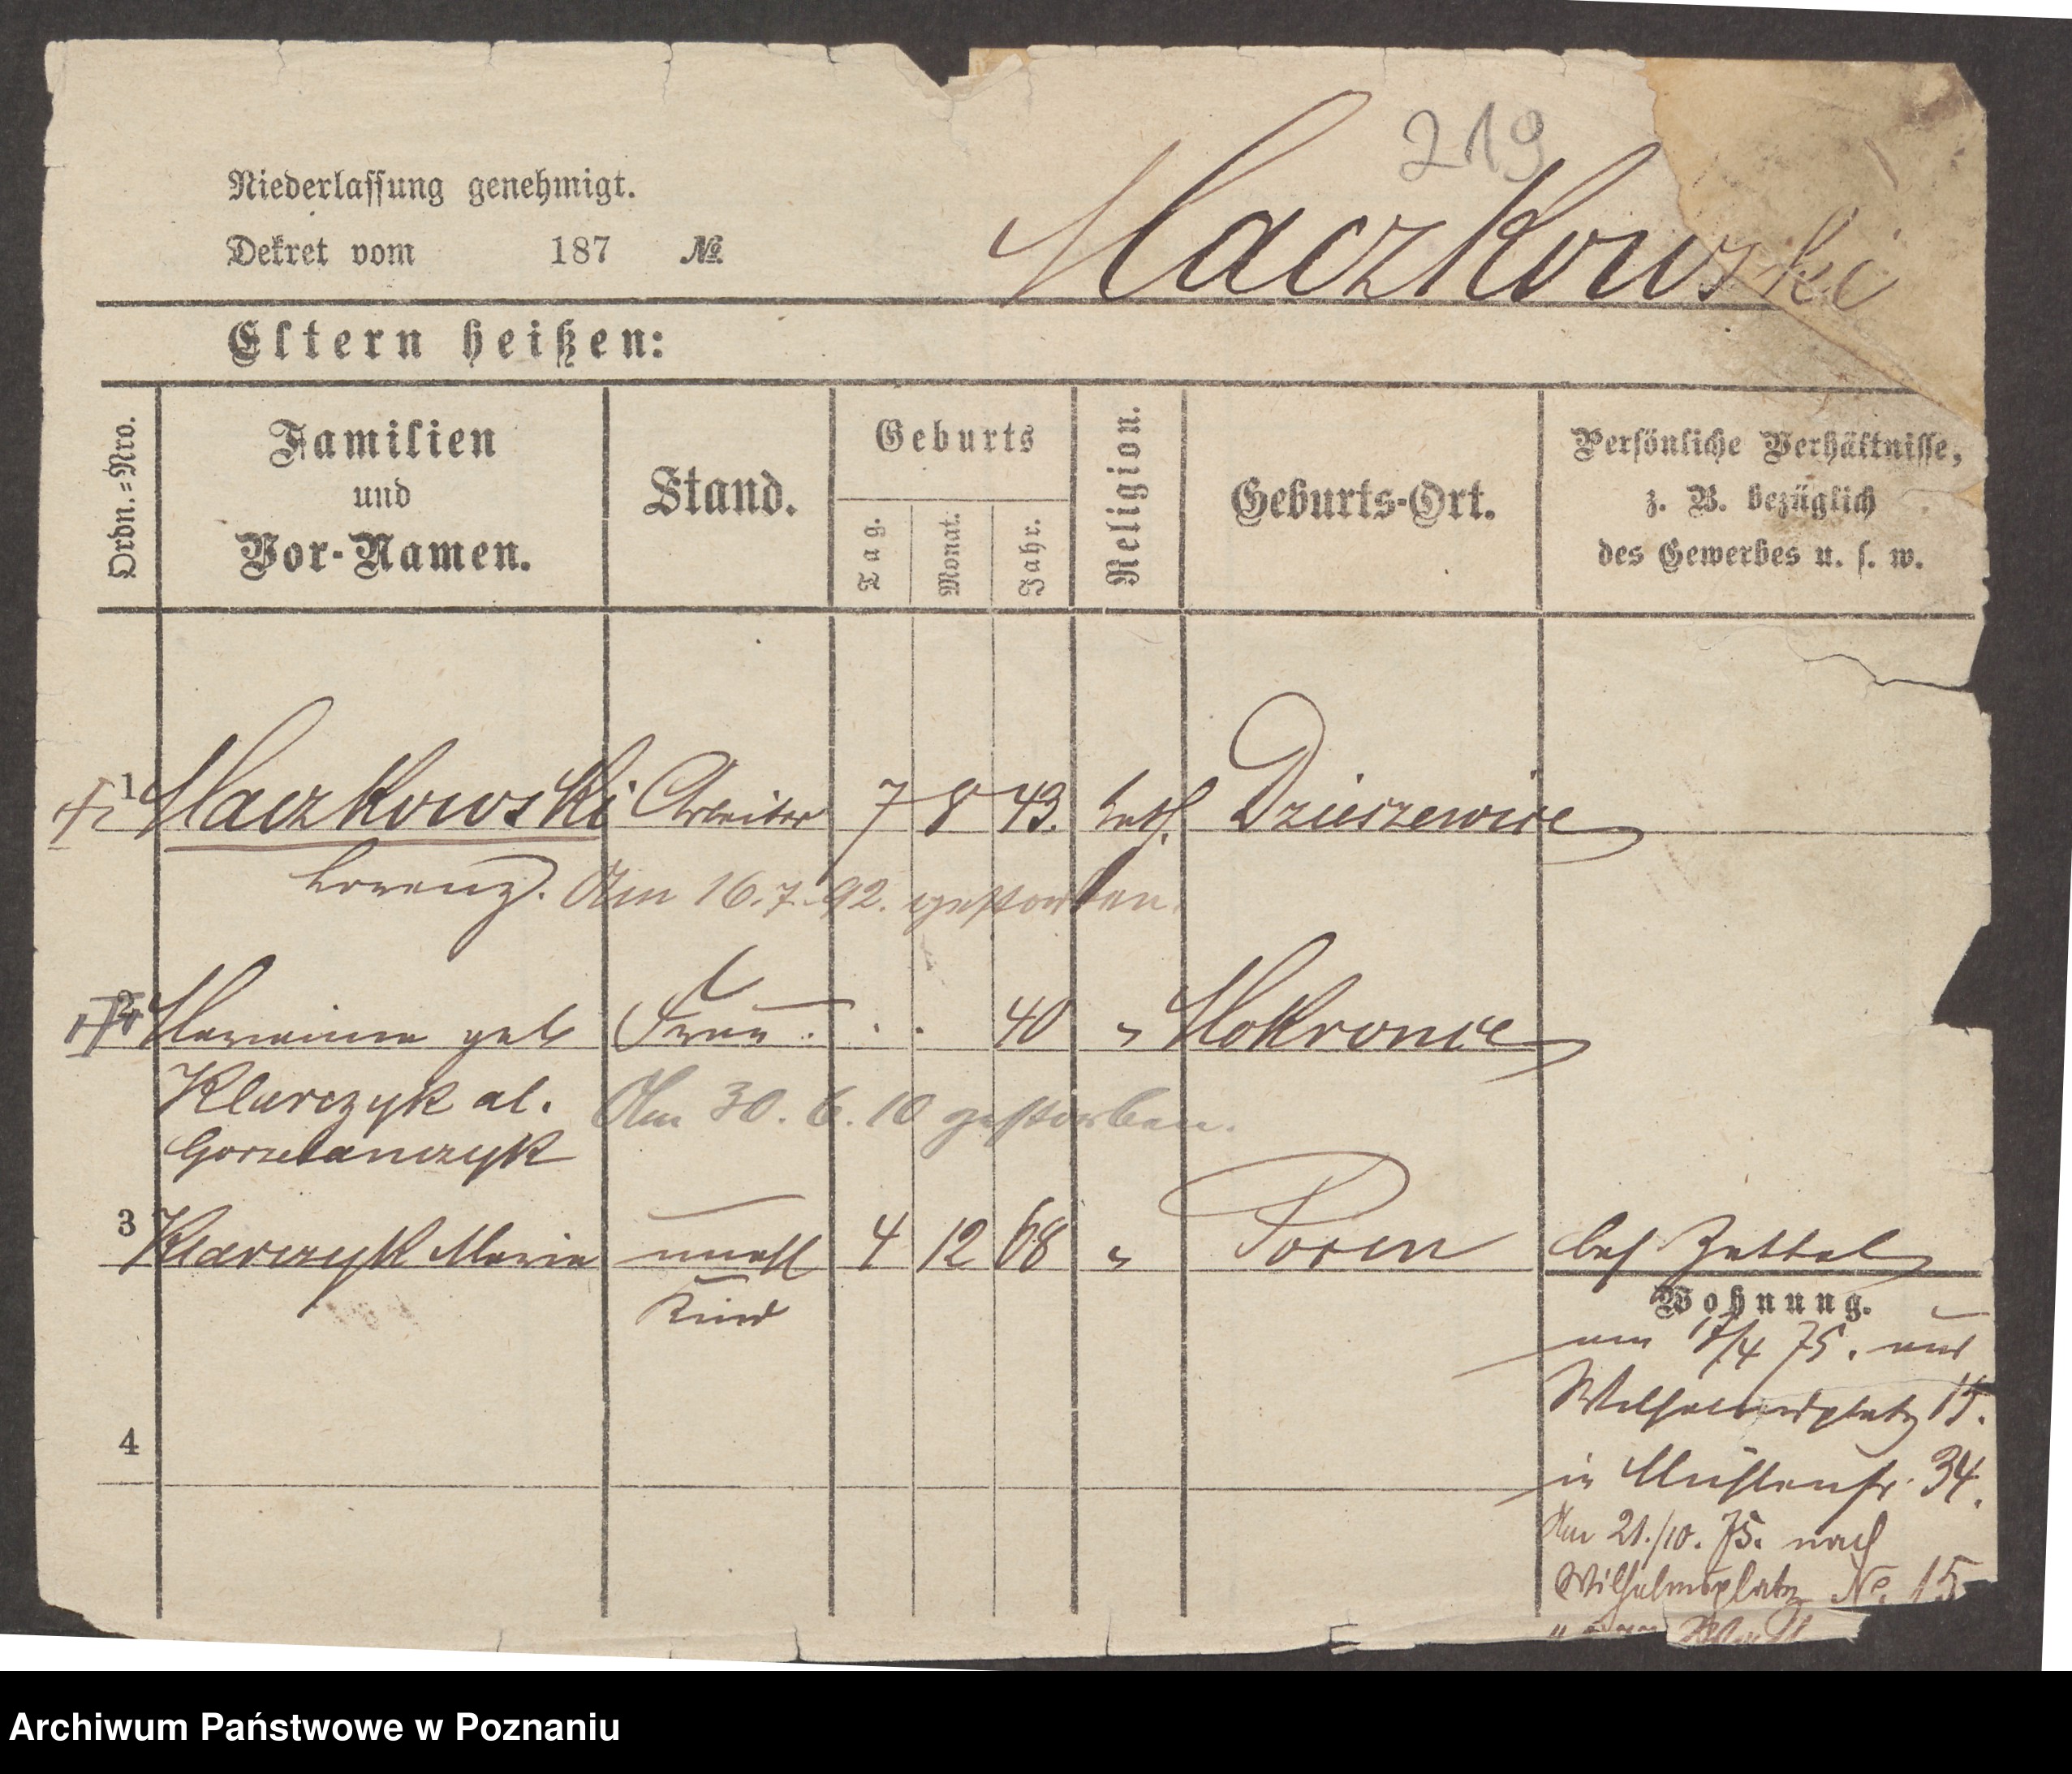 219
Niederlassung genehmigt.
Dekret vom 187 № Maczkowski
Eltern heißen:
Ordn.=Nro. Familien und Vor-Namen. Stand. Geburts Tag. Monat. Jahr. Religion. Geburts-Ort. Persönliche Verhältnisse, z. B. bezüglich des Gewerbes u. s. w.
1 Maczkowski Arbeiter 7 8 43. kath. Dzierzewice
Lorenz. Am 16.7.92. gestorben.
2 Marianna geb Frau . . 40 " Mokronce
Klarczyk al. Am 30. 6. 10 gestorben.
Gorzelanczyk
3 Klarczyk Maria unehl 4 12 68 " Posen bes Zettel
Kind
Wohnung.
am 1/4 75. aus
Wilhelmsplatz 15.
in Mühlenstr. 34.
4
Am 21./10. 75. nach
Wilhelmsplatz No. 15
Archiwum Państwowe w Poznaniu